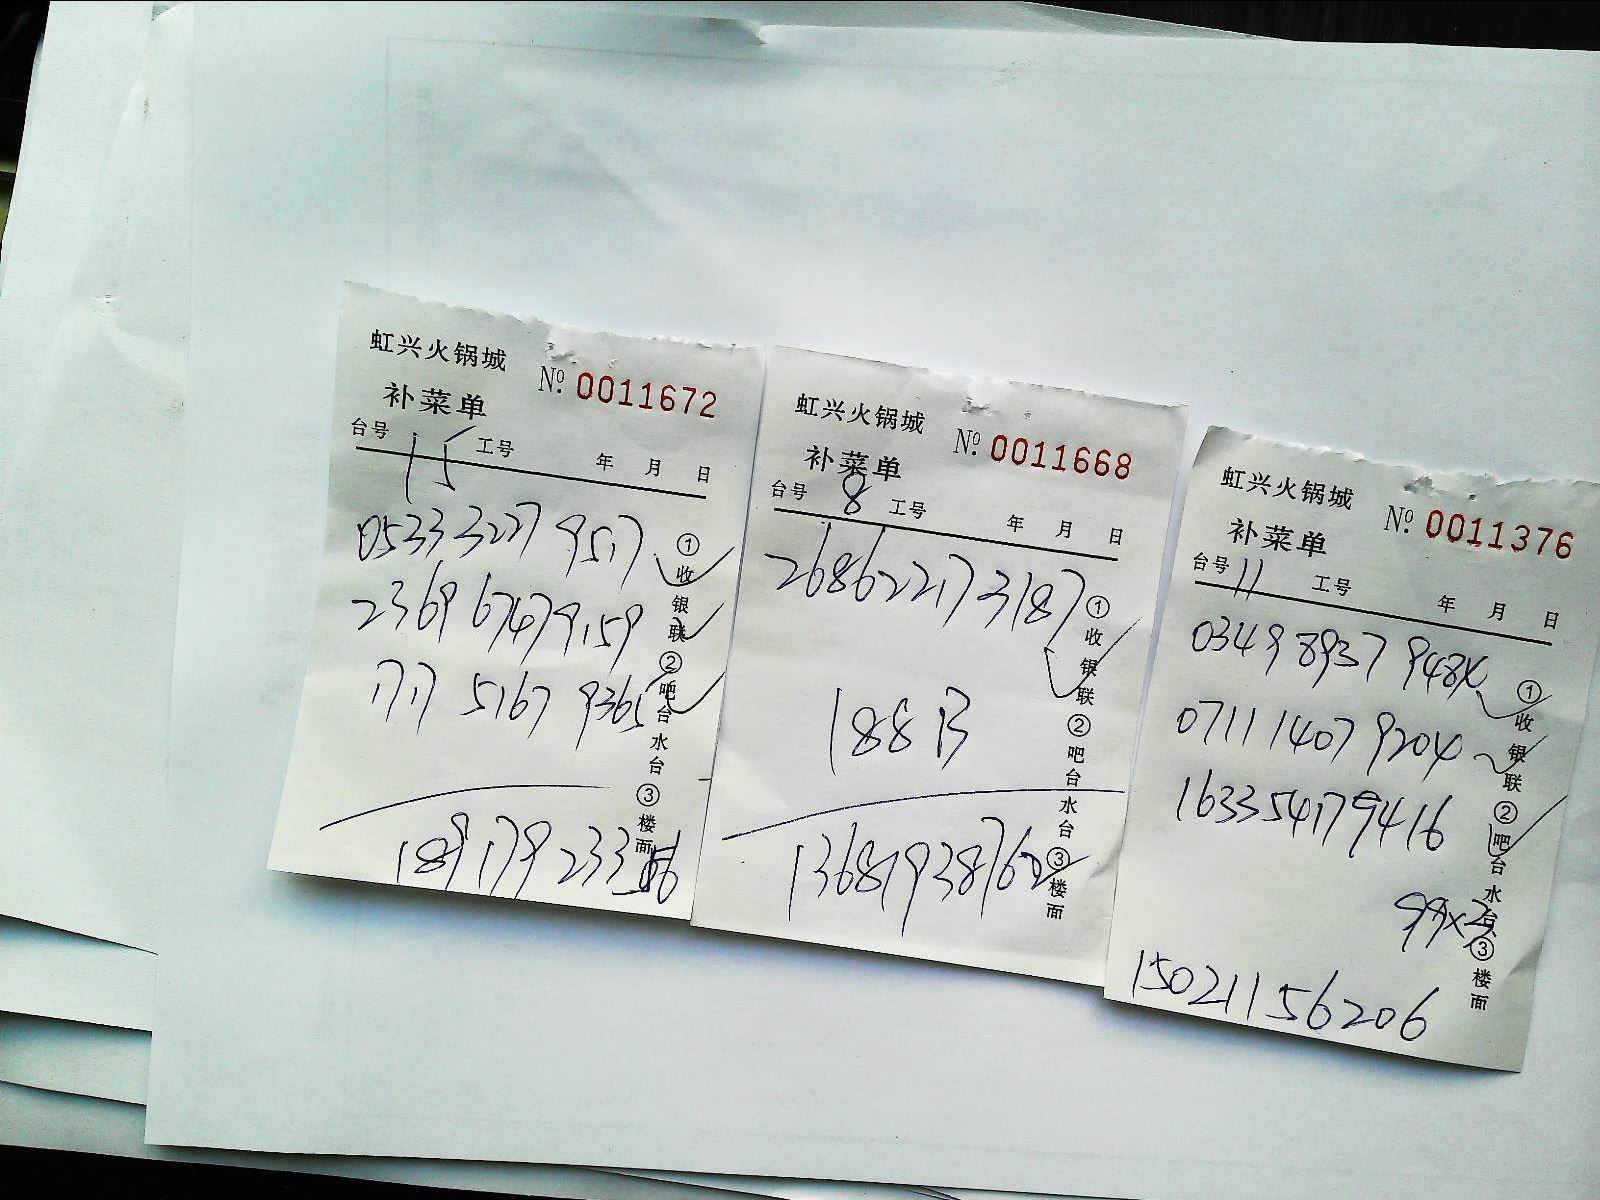 虹兴火锅城
№ 0011672
补菜单
台号 15 工号 年 月 日
0533 3227 9517
2369 6747 9159
1717 5167 9365
①收银联②吧台水台③楼面
虹兴火锅城
№ 0011668
补菜单
台号 8 工号 年 月 日
268622173187
188B
13681938760
①收银联②吧台水台③楼面
虹兴火锅城
№ 0011376
补菜单
台号 11 工号 年 月 日
0349 8937 948
0711 1407 9204
1633 5417 9416
15021156206
①收银联②吧台水台③楼面